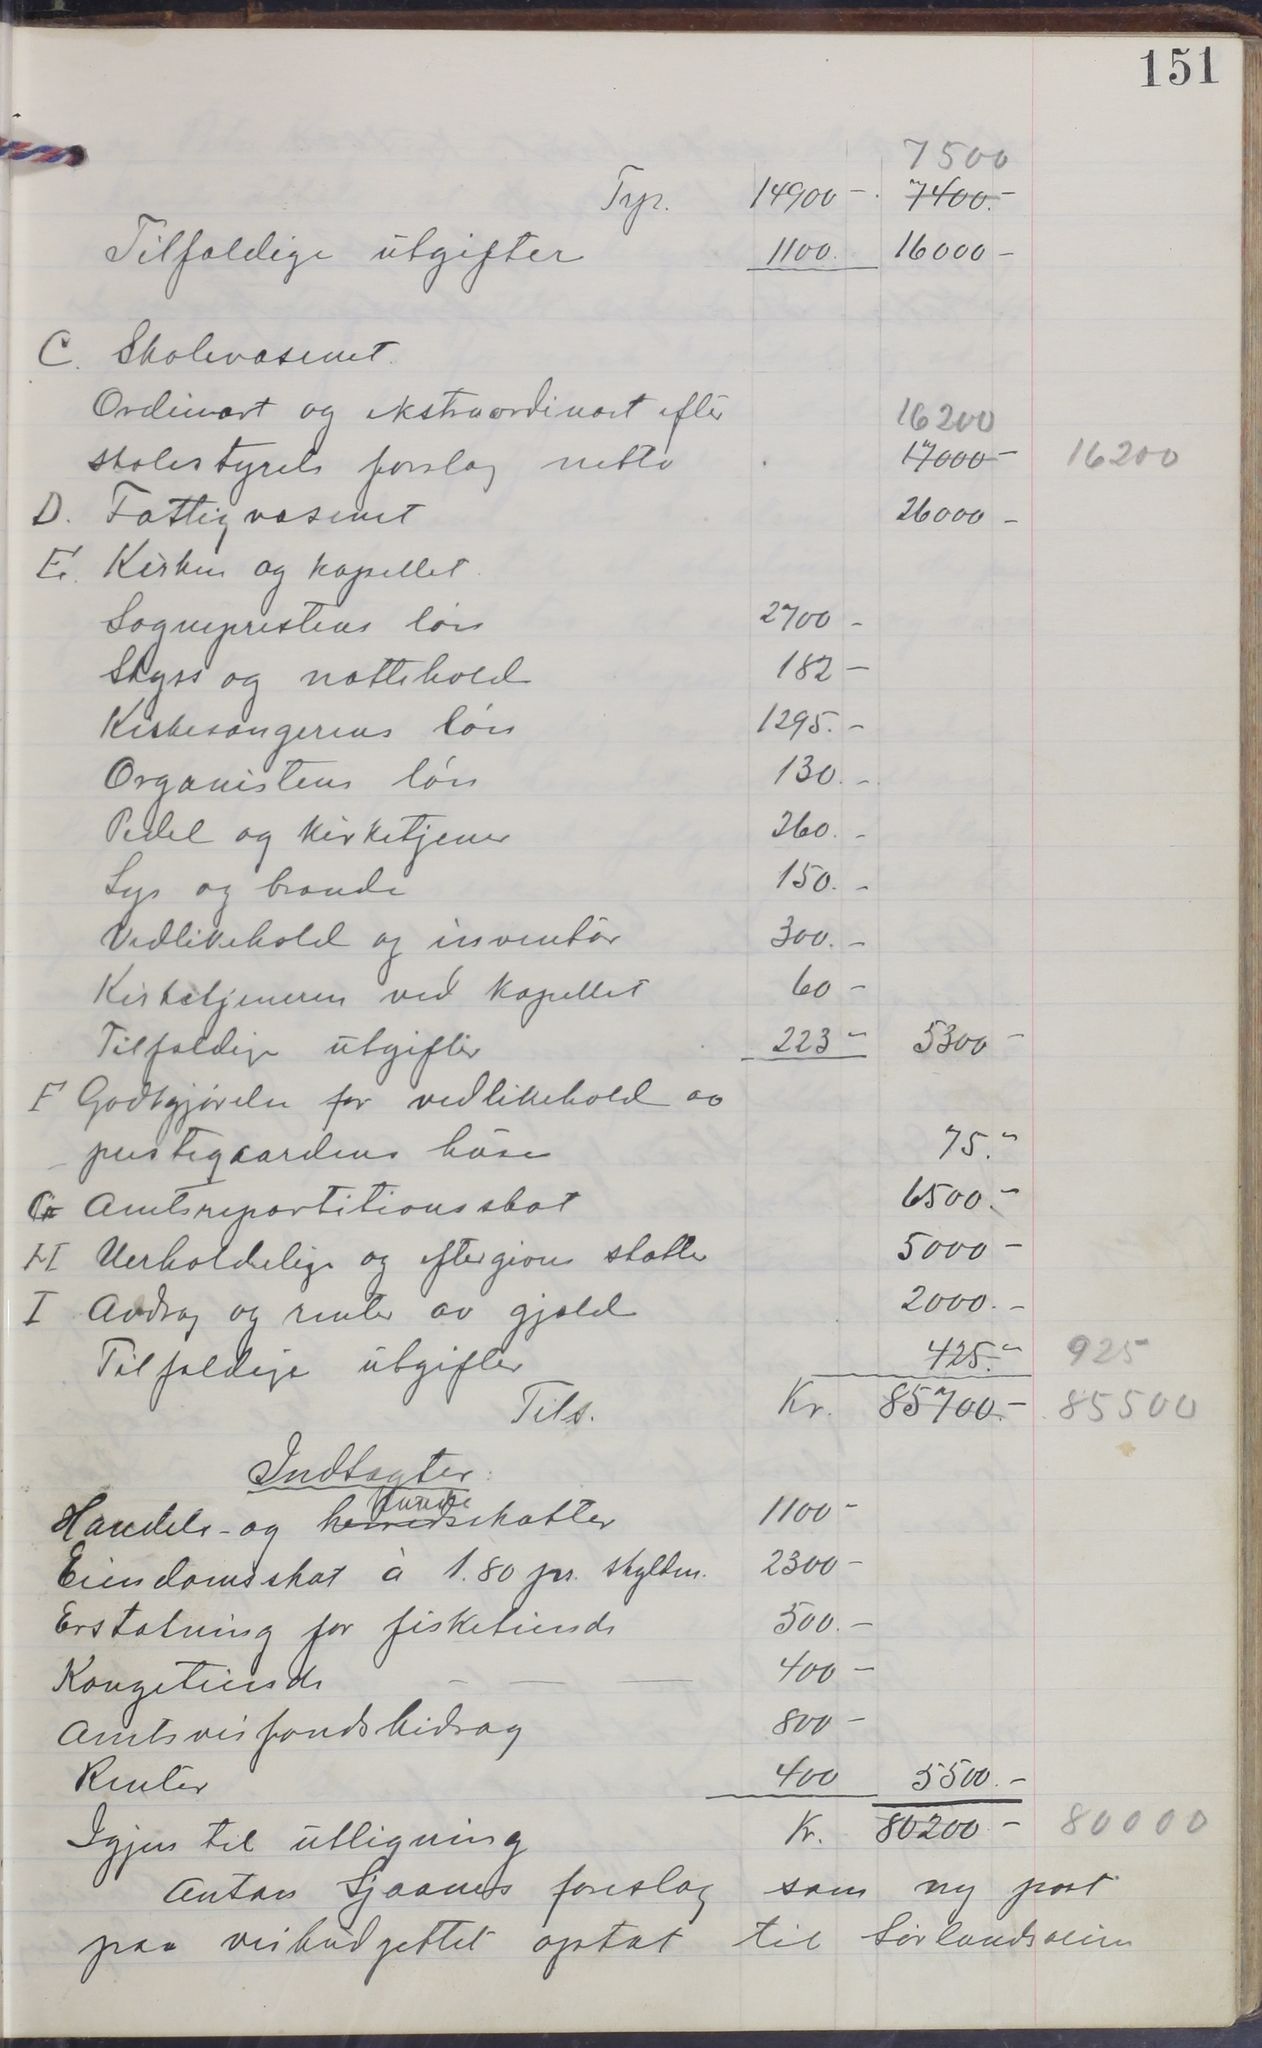 151
7500
Trp. 14900 - 7400.-
Tilfældige utgifter 1100. 16000 -
C. Skolevæsenet.
Ordinært og ekstraordinært efter 16200
skolestyrets forslag netto 17000 - 16200
D. Fattigvæsenet 26000 -
E. Kirken og kapellet.
Sogneprestens løn 2700 -
Skyss og nattehold 182 -
Kirkesangerens løn 1295. -
Organistens løn 130. -
Pedel og kirketjener 260. -
Lys og brænde 150. -
Vedlikehold og inventar 300. -
Kirketjeneren ved kapellet 60 -
Tilfældige utgifter 223 - 5300 -
F Godtgjørelse for vedlikehold av
prestegaardens huse 75. -
G Amtsrepartitionsskat 6500. -
H Uerholdelige og eftergivne skatter 5000 -
I Avdrag og renter av gjæld 2000. -
Tilfældige utgifter 425. - 925
Tils. Kr. 85700. - 85500
Indtægter:
Handels- og herredsskatter 1100 -
Eiendomsskat à 1.80 pr. skyldm. 2300 -
Erstatning for fisketiende 500. -
Kongetiende — — — 400 -
Amtsveifondsbidrag 800 -
Renter 400 5500. -
Igjen til utligning Kr. 80200 - 80000
Anton Sjaanes foreslog som ny post
paa veibudgettet optat til Sørlandsveien